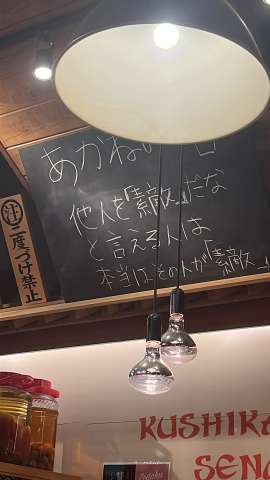 あかね
他人を「素敵」だな
と言える人は
本当はその人が「素敵
汁二度づけ禁止
KUSHIKA
SEN